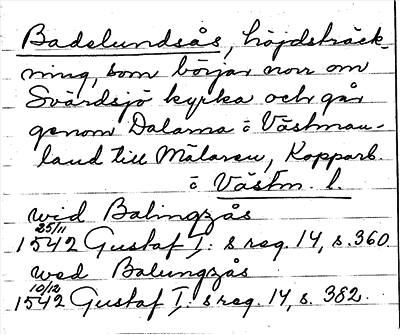 Badelundsås, höjdsträck-
ning, som börjar norr om
Svärdsjö kyrka och går
genom Dalarna o Västman-
land till Mälaren, Kopparb.
o Västm. l.
wid Balingzås
25/11 1542 Gustaf I:s reg. 14, s. 360.
wed Balungzås
10/12 1542 Gustaf I:s reg. 14, s. 382.